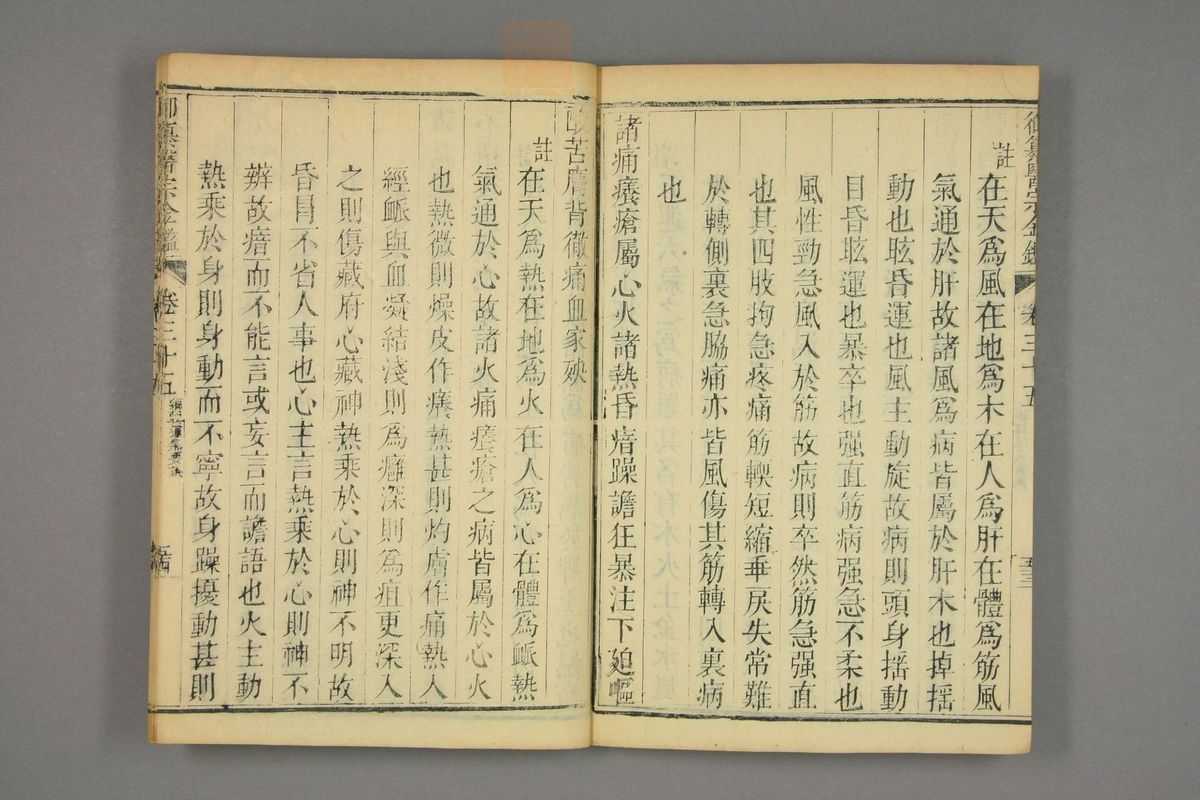 御纂醫宗金鑑
卷三十五
五三
註在天爲風在地爲木在人爲肝在體爲筋風
氣通於肝故諸風爲病皆屬於肝木也掉搖
動也眩昏運也風主動旋故病則頭身揺動
目昏眩運也暴卒也强直筋病强急不柔也
風性勁急風入於筋故病則卒然筋急强直
也其四肢拘急疼痛筋輭短縮乖戾失常難
於轉側裏急脇痛亦皆風傷其筋轉入裏病
也
諸痛癢瘡屬心火諸熱昏瘖躁譫狂暴注下廹嘔
苦膚背徹痛血家殃
註在天爲熱在地爲火在人爲心在體爲脈熱
氣通於心故諸火痛癢瘡之病皆屬於心火
也熱微則燥皮作癢熱甚則灼膚作痛熱入
經脈與血凝結淺則爲癰深則爲疽更深入
之則傷藏府心藏神熱乘於心則神不明故
昏冒不省人事也心主言熱乘於心則神不
辨故瘖而不能言或妄言而譫語也火主動
熱乘於身則身動而不寧故身躁擾動甚則
御纂醫宗金鑑
卷三十五
運氣要訣